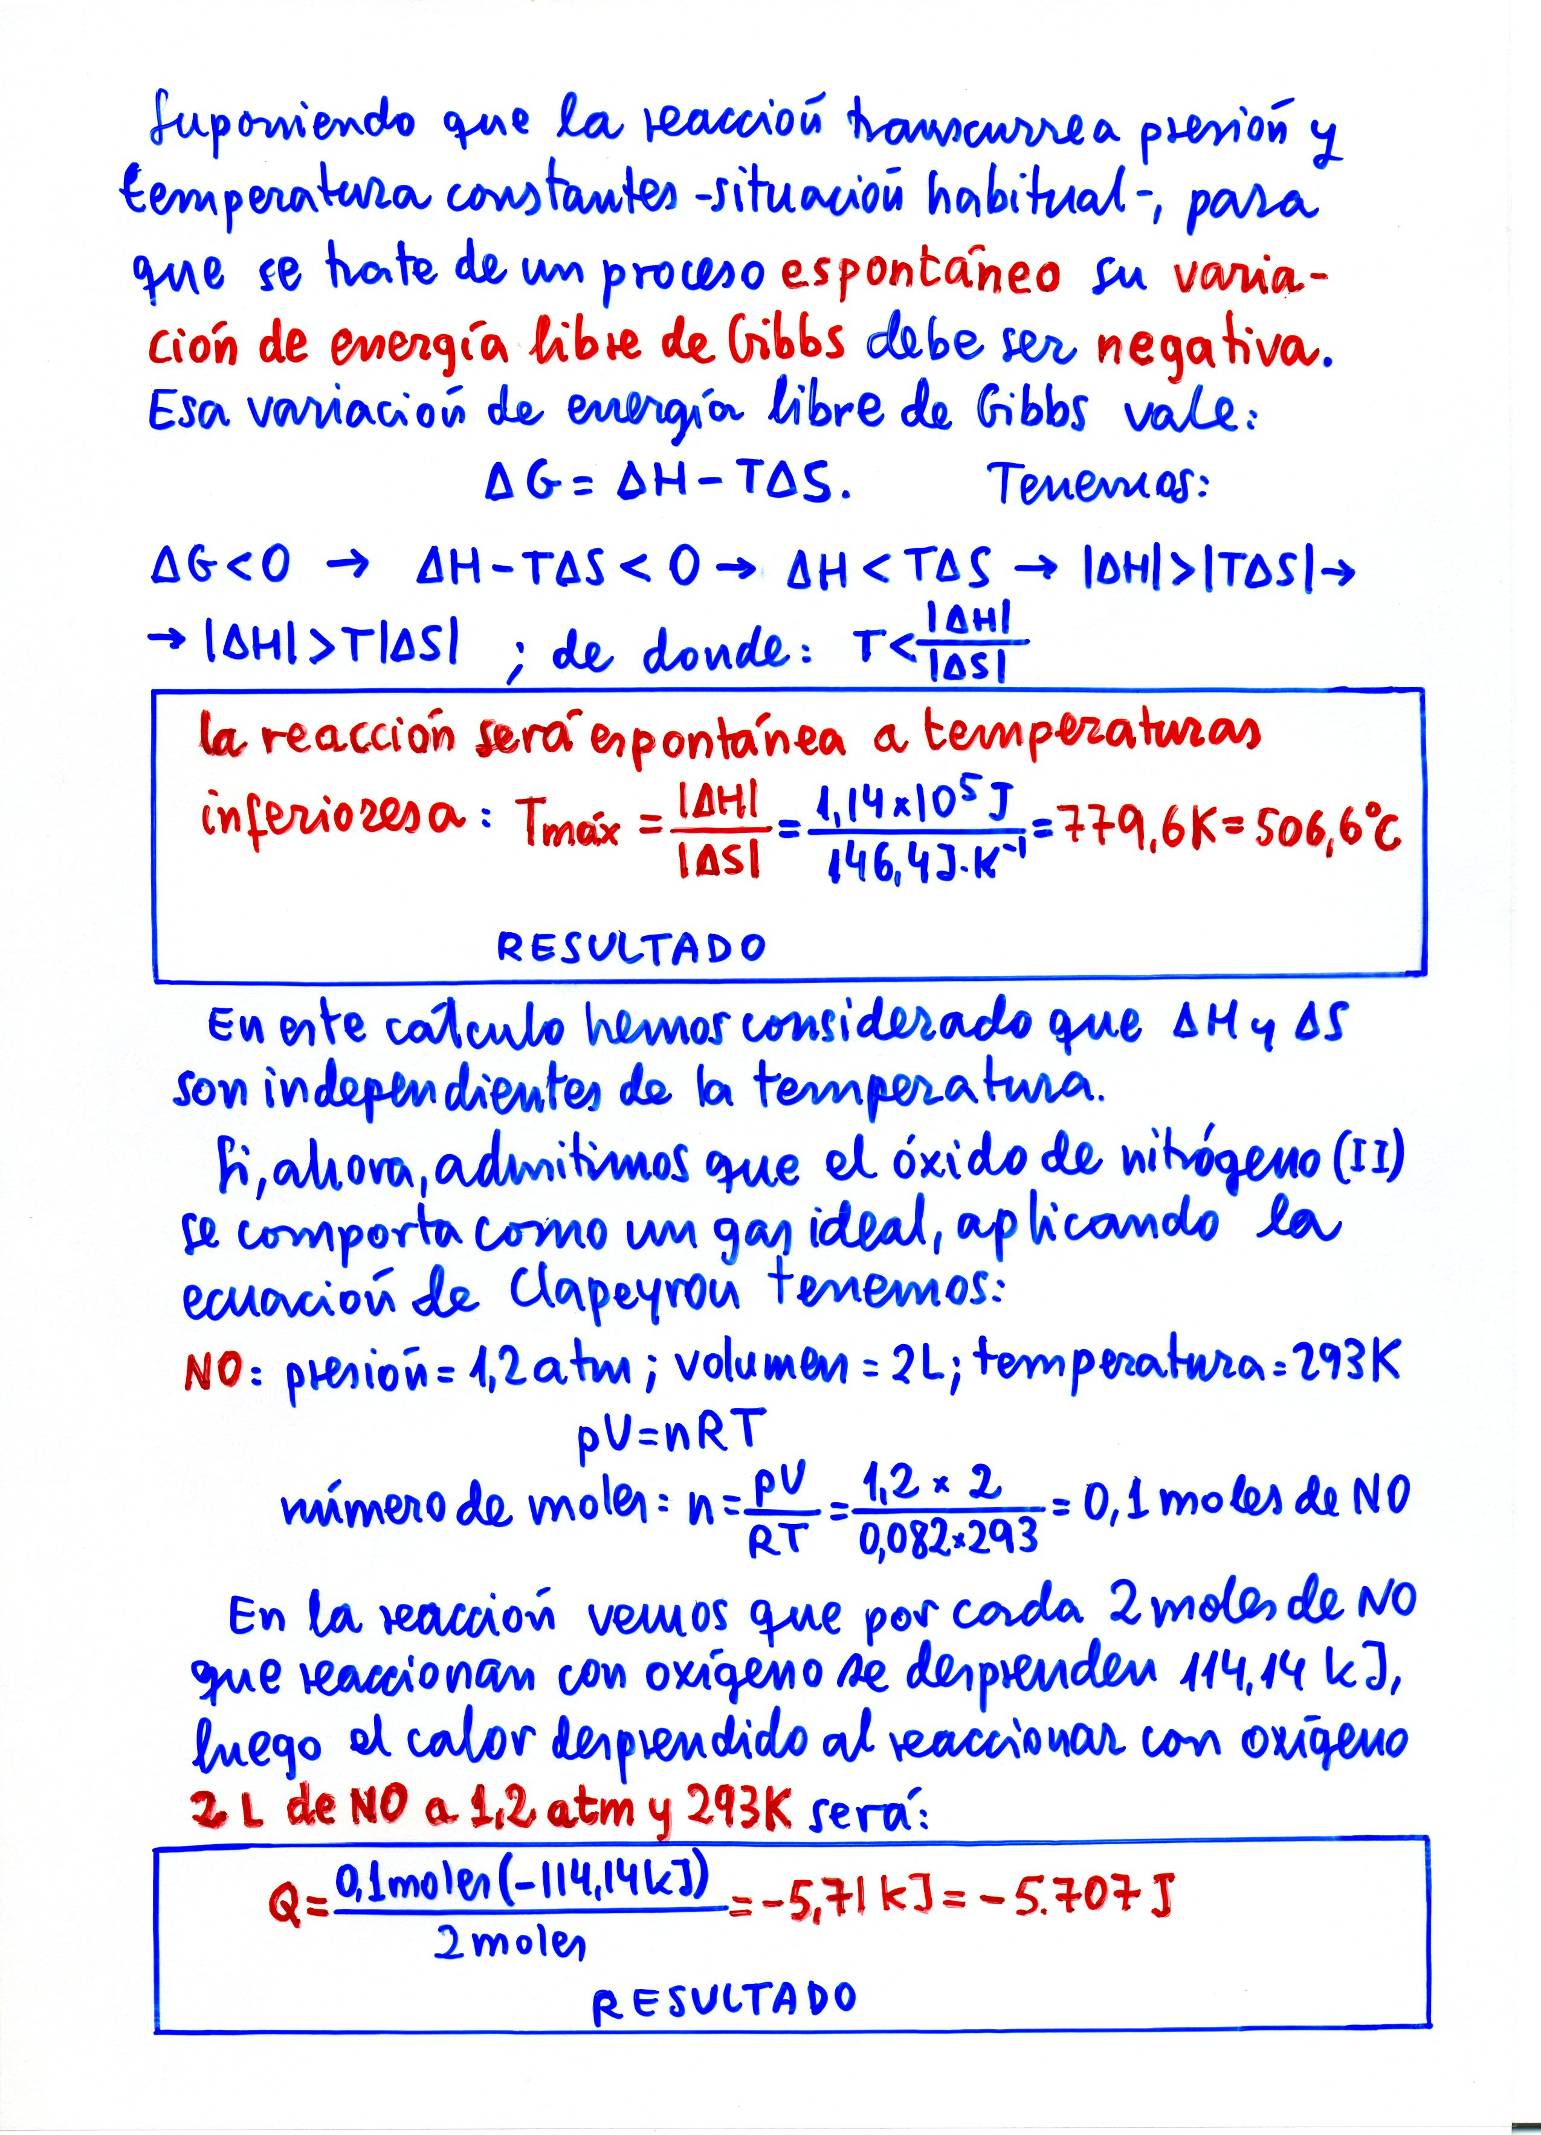 Suponiendo que la reacción transcurre a presión y
temperatura constantes -situación habitual-, para
que se trate de un proceso espontáneo su varia-
ción de energía libre de Gibbs debe ser negativa.
Esa variación de energía libre de Gibbs vale:
ΔG = ΔH - TΔS. Tenemos:
ΔG < 0 → ΔH - TΔS < 0 → ΔH < TΔS → |ΔH| > |TΔS| →
→ |ΔH| > T|ΔS| ; de donde: T < |ΔH| / |ΔS|
La reacción será espontánea a temperaturas
inferiores a: Tmáx = |ΔH| / |ΔS| = 1,14 × 10⁵ J / 146,4 J·K⁻¹ = 779,6 K = 506,6 °C
RESULTADO
En este cálculo hemos considerado que ΔH y ΔS
son independientes de la temperatura.
Si, ahora, admitimos que el óxido de nitrógeno (II)
se comporta como un gas ideal, aplicando la
ecuación de Clapeyron tenemos:
NO: presión = 1,2 atm; volumen = 2 L; temperatura = 293 K
pV = nRT
número de moles: n = pV / RT = 1,2 × 2 / 0,082 × 293 = 0,1 moles de NO
En la reacción vemos que por cada 2 moles de NO
que reaccionan con oxígeno se desprenden 114,14 kJ,
luego el calor desprendido al reaccionar con oxígeno
2 L de NO a 1,2 atm y 293 K será:
Q = 0,1 moles (-114,14 kJ) / 2 moles = -5,71 kJ = -5.707 J
RESULTADO